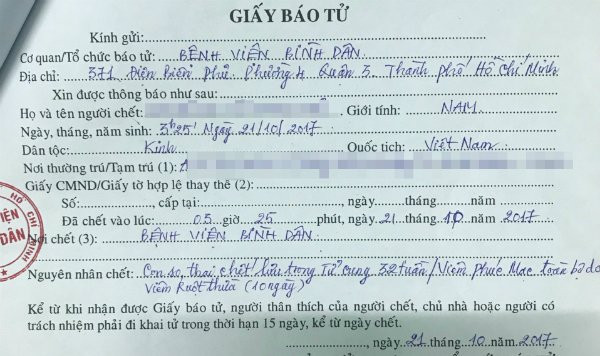 GIẤY BÁO TỬ
Kính gửi:
Cơ quan/Tổ chức báo tử: BỆNH VIỆN BÌNH DÂN
Địa chỉ: 371 Điện Biên Phủ, Phường 4, Quận 3, Thành phố Hồ Chí Minh
Xin được thông báo như sau:
Họ và tên người chết: Giới tính: NAM
Ngày, tháng, năm sinh: 3h25' Ngày 21/10/2017
Dân tộc: Kinh Quốc tịch: Việt Nam
Nơi thường trú/Tạm trú (1):
Giấy CMND/Giấy tờ hợp lệ thay thế (2):
Số: , cấp tại: ngày tháng năm
Đã chết vào lúc: 05 giờ 25 phút, ngày 21 tháng 10 năm 2017
Nơi chết (3): BỆNH VIỆN BÌNH DÂN
Nguyên nhân chết: Con so, thai chết lưu trong Tử cung 32 tuần/Viêm Phúc Mạc toàn bộ do
Viêm Ruột thừa (10 ngày)
Kể từ khi nhận được Giấy báo tử, người thân thích của người chết, chủ nhà hoặc người có
trách nhiệm phải đi khai tử trong thời hạn 15 ngày, kể từ ngày chết.
, ngày 21 tháng 10 năm 2017